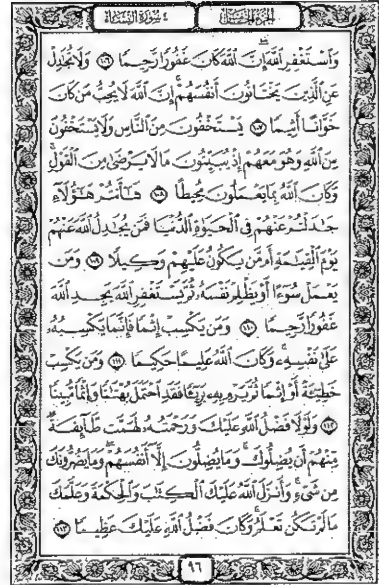 الجزء الخامس سورة النساء ٤
وَٱسْتَغْفِرِ ٱللَّهَ إِنَّ ٱللَّهَ كَانَ غَفُورًا رَّحِيمًا ١٠٦ وَلَا تُجَٰدِلْ
عَنِ ٱلَّذِينَ يَخْتَانُونَ أَنفُسَهُمْ إِنَّ ٱللَّهَ لَا يُحِبُّ مَن كَانَ
خَوَّانًا أَثِيمًا ١٠٧ يَسْتَخْفُونَ مِنَ ٱلنَّاسِ وَلَا يَسْتَخْفُونَ
مِنَ ٱللَّهِ وَهُوَ مَعَهُمْ إِذْ يُبَيِّتُونَ مَا لَا يَرْضَىٰ مِنَ ٱلْقَوْلِ
وَكَانَ ٱللَّهُ بِمَا يَعْمَلُونَ مُحِيطًا ١٠٨ هَٰٓأَنتُمْ هَٰٓؤُلَآءِ
جَٰدَلْتُمْ عَنْهُمْ فِى ٱلْحَيَوٰةِ ٱلدُّنْيَا فَمَن يُجَٰدِلُ ٱللَّهَ عَنْهُمْ
يَوْمَ ٱلْقِيَٰمَةِ أَم مَّن يَكُونُ عَلَيْهِمْ وَكِيلًا ١٠٩ وَمَن
يَعْمَلْ سُوٓءًا أَوْ يَظْلِمْ نَفْسَهُۥ ثُمَّ يَسْتَغْفِرِ ٱللَّهَ يَجِدِ ٱللَّهَ
غَفُورًا رَّحِيمًا ١١٠ وَمَن يَكْسِبْ إِثْمًا فَإِنَّمَا يَكْسِبُهُۥ
عَلَىٰ نَفْسِهِۦ وَكَانَ ٱللَّهُ عَلِيمًا حَكِيمًا ١١١ وَمَن يَكْسِبْ
خَطِيٓـَٔةً أَوْ إِثْمًا ثُمَّ يَرْمِ بِهِۦ بَرِيٓـًٔا فَقَدِ ٱحْتَمَلَ بُهْتَٰنًا وَإِثْمًا مُّبِينًا
١١٢ وَلَوْلَا فَضْلُ ٱللَّهِ عَلَيْكَ وَرَحْمَتُهُۥ لَهَمَّت طَّآئِفَةٌ
مِّنْهُمْ أَن يُضِلُّوكَ وَمَا يُضِلُّونَ إِلَّآ أَنفُسَهُمْ وَمَا يَضُرُّونَكَ
مِن شَىْءٍ وَأَنزَلَ ٱللَّهُ عَلَيْكَ ٱلْكِتَٰبَ وَٱلْحِكْمَةَ وَعَلَّمَكَ
مَا لَمْ تَكُن تَعْلَمُ وَكَانَ فَضْلُ ٱللَّهِ عَلَيْكَ عَظِيمًا ١١٣
٩٦